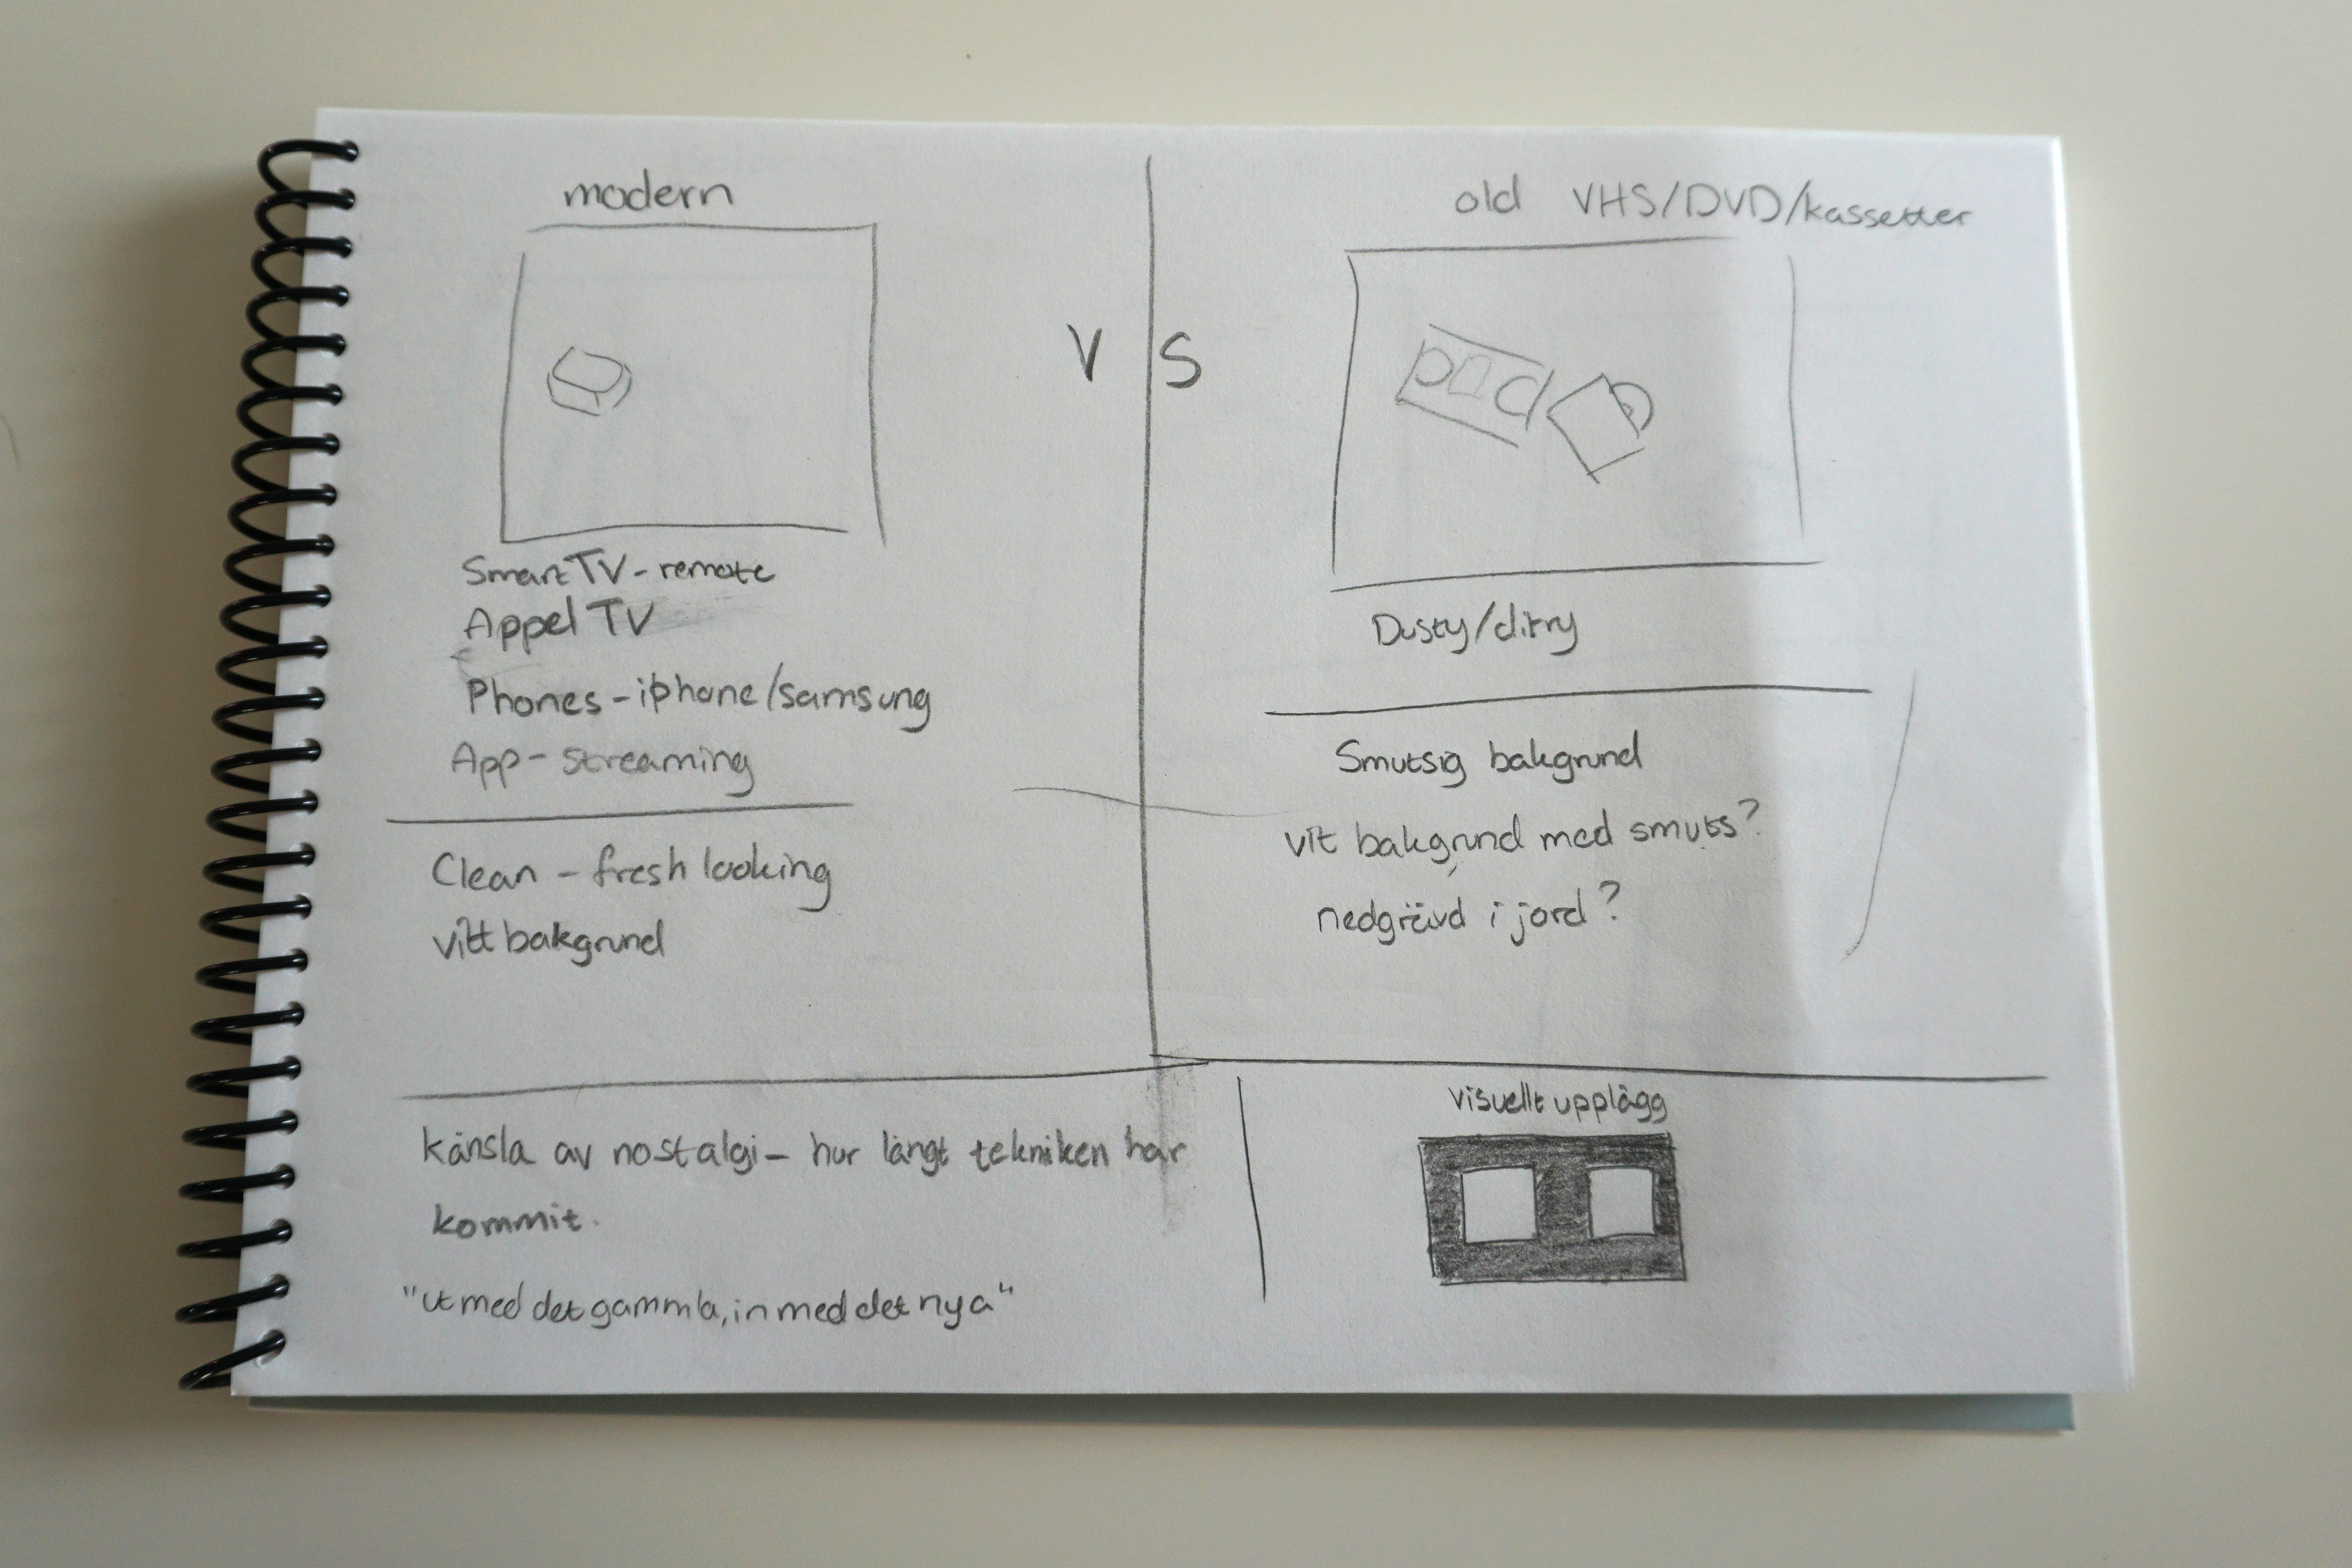 modern
V S
old VHS/DVD/kassetter
Smart TV - remote
Appel TV
Phones - iphone/samsung
App - streaming
Clean - fresh looking
vitt bakgrund
Dusty/dirty
Smutsig bakgrund
vit bakgrund med smuts?
nedgrävd i jord?
känsla av nostalgi - hur långt tekniken har
kommit.
"ut med det gammla, in med det nya"
visuellt upplägg